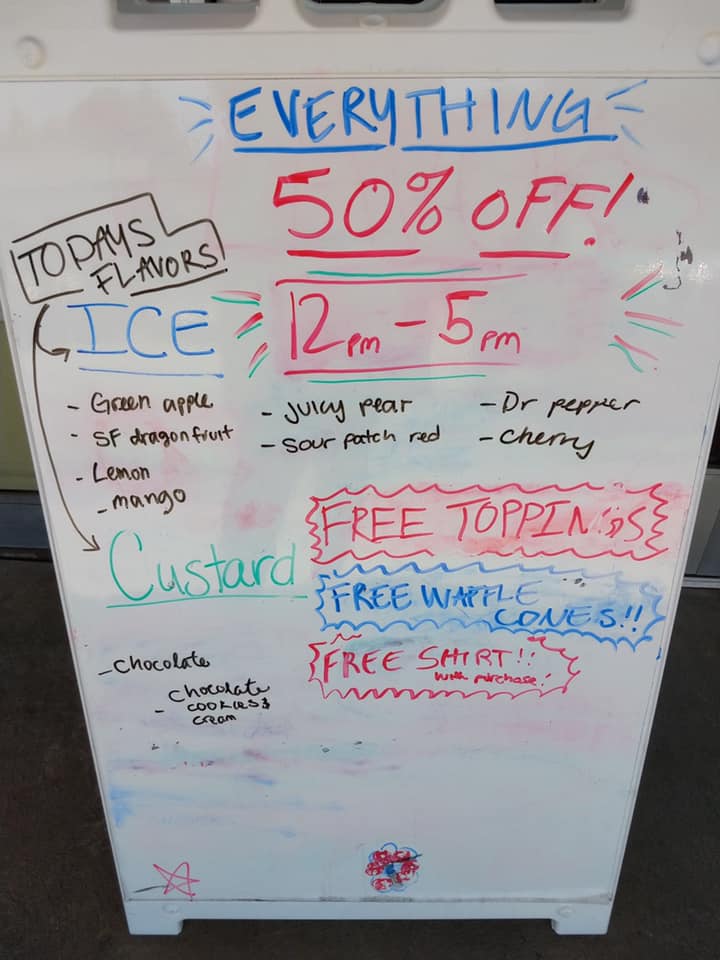 EVERYTHING
50% OFF!
TODAYS
FLAVORS
ICE
12pm - 5pm
- Green apple
- SF dragonfruit
- Lemon
- mango
- Juicy pear
- Sour patch red
- Dr pepper
- Cherry
FREE TOPPINGS
Custard
FREE WAFFLE
CONES!!
FREE SHIRT!!
with purchase!
- Chocolate
- Chocolate
cookies &
cream